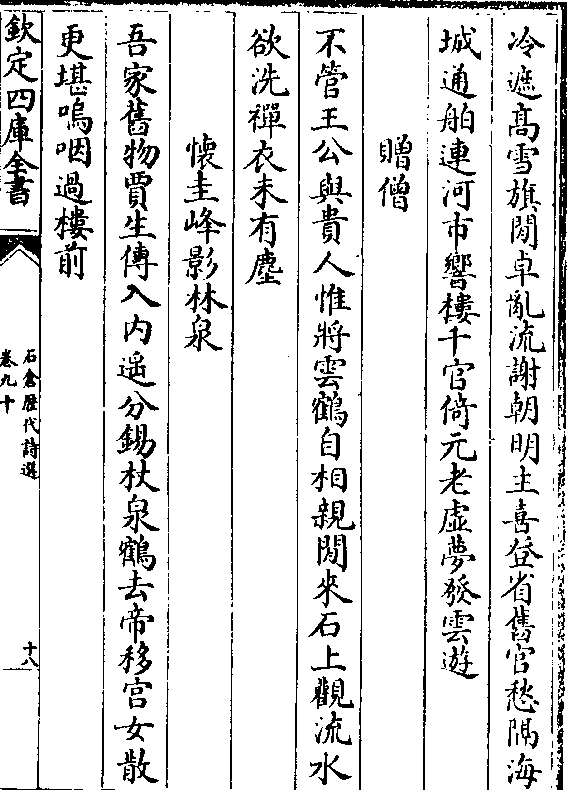 冷遮髙雪旗閒卓亂流謝朝明主喜登省舊官愁隔海
城通舶連河市響樓千官倚元老虛夢發雲遊
贈僧
不管王公與貴人惟將雲鶴自相親閒來石上觀流水
欲洗禪衣未有塵
懐圭峰影林泉
吾家舊物賈生傳入内遥分錫杖泉鶴去帝移宫女散
更堪嗚咽過樓前
欽定四庫全書
石倉歴代詩選
卷九十
十八